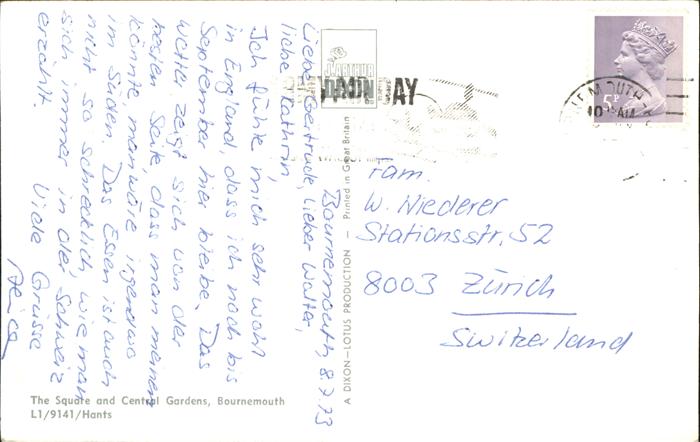 Bournemouth, 8.7.73
Liebe Gertrude, lieber Walter,
liebe Kathrin
Ich fühle mich sehr wohl
in England, dass ich noch bis
September hier bleibe. Das
Wetter zeigt sich von der
besten Seite, dass man meinen
könnte, man wäre irgendwo
im Süden. Das Essen ist auch
nicht so schrecklich, wie man
sich immer in der Schweiz
erzählt.
Viele Grüsse
The Square and Central Gardens, Bournemouth
L1/9141/Hants
A DIXON—LOTUS PRODUCTION — Printed in Great Britain
J. ARTHUR
DIXON
Fam.
W. Niederer
Stationsstr. 52
8003 Zürich
Switzerland
5P
MOUTH
AM